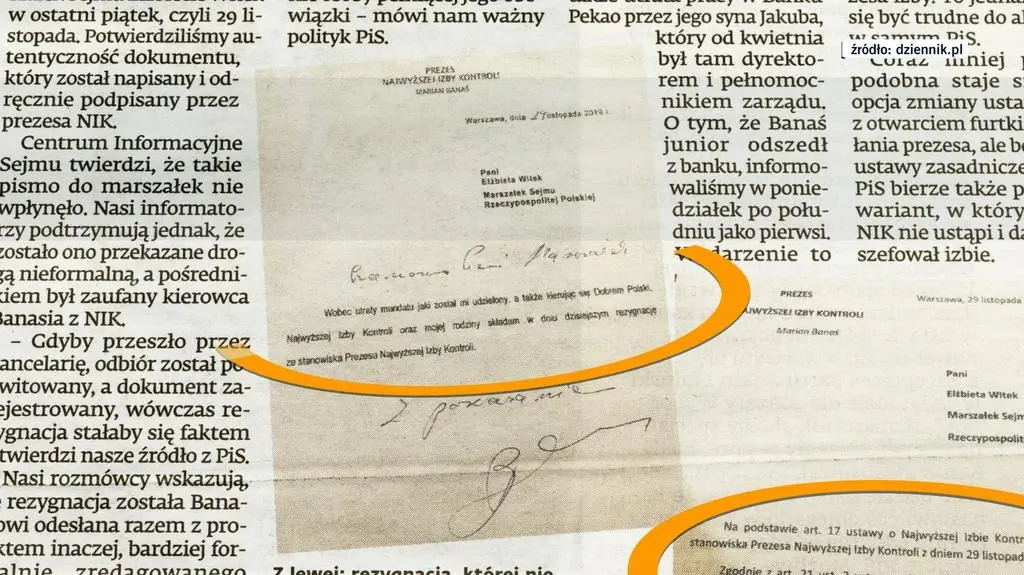 w ostatni piątek, czyli 29 li-
stopada. Potwierdziliśmy au-
tentyczność dokumentu,
który został napisany i od-
ręcznie podpisany przez
prezesa NIK.
Centrum Informacyjne
Sejmu twierdzi, że takie
pismo do marszałek nie
wpłynęło. Nasi informato-
rzy podtrzymują jednak, że
zostało ono przekazane dro-
gą nieformalną, a pośredni-
kiem był zaufany kierowca
Banasia z NIK.
– Gdyby przeszło przez
kancelarię, odbiór został po-
kwitowany, a dokument za-
rejestrowany, wówczas re-
zygnacja stałaby się faktem
twierdzi nasze źródło z PiS.
Nasi rozmówcy wskazują,
rezygnacja została Bana-
owi odesłana razem z pro-
ektem inaczej, bardziej for-
malnie zredagowanego
wiązki – mówi nam ważny
polityk PiS.
PREZES
NAJWYŻSZEJ IZBY KONTROLI
MARIAN BANAŚ
Warszawa, dnia 29 listopada 2019 r.
Pani
Elżbieta Witek
Marszałek Sejmu
Rzeczypospolitej Polskiej
Szanowna Pani Marszałek
Wobec utraty mandatu jaki został mi udzielony, a także kierując się Dobrem Polski,
Najwyższej Izby Kontroli oraz mojej rodziny składam w dniu dzisiejszym rezygnację
ze stanowiska Prezesa Najwyższej Izby Kontroli.
Z poważaniem
Z lewej: rezygnacja, której nie
Pekao przez jego syna Jakuba,
który od kwietnia
był tam dyrekto-
rem i pełnomoc-
nikiem zarządu.
O tym, że Banaś
junior odszedł
z banku, informo-
waliśmy w ponie-
działek po połu-
dniu jako pierwsi.
Wydarzenie to
się być trudne do
w samym PiS.
źródło: dziennik.pl
Coraz mniej
podobna staje
opcja zmiany
z otwarciem furtki
łania prezesa, ale
ustawy zasadnicze
PiS bierze także
wariant, w który
NIK nie ustąpi i
szefował izbie.
PREZES
NAJWYŻSZEJ IZBY KONTROLI
Marian Banaś
Warszawa, 29 listopad
Pani
Elżbieta Witek
Marszałek Sejm
Rzeczypospolit
Na podstawie art. 17 ustawy o Najwyższej Izbie Kontr
stanowiska Prezesa Najwyższej Izby Kontroli z dniem 29 listopad
Zgodnie z art. 21 ust. 2